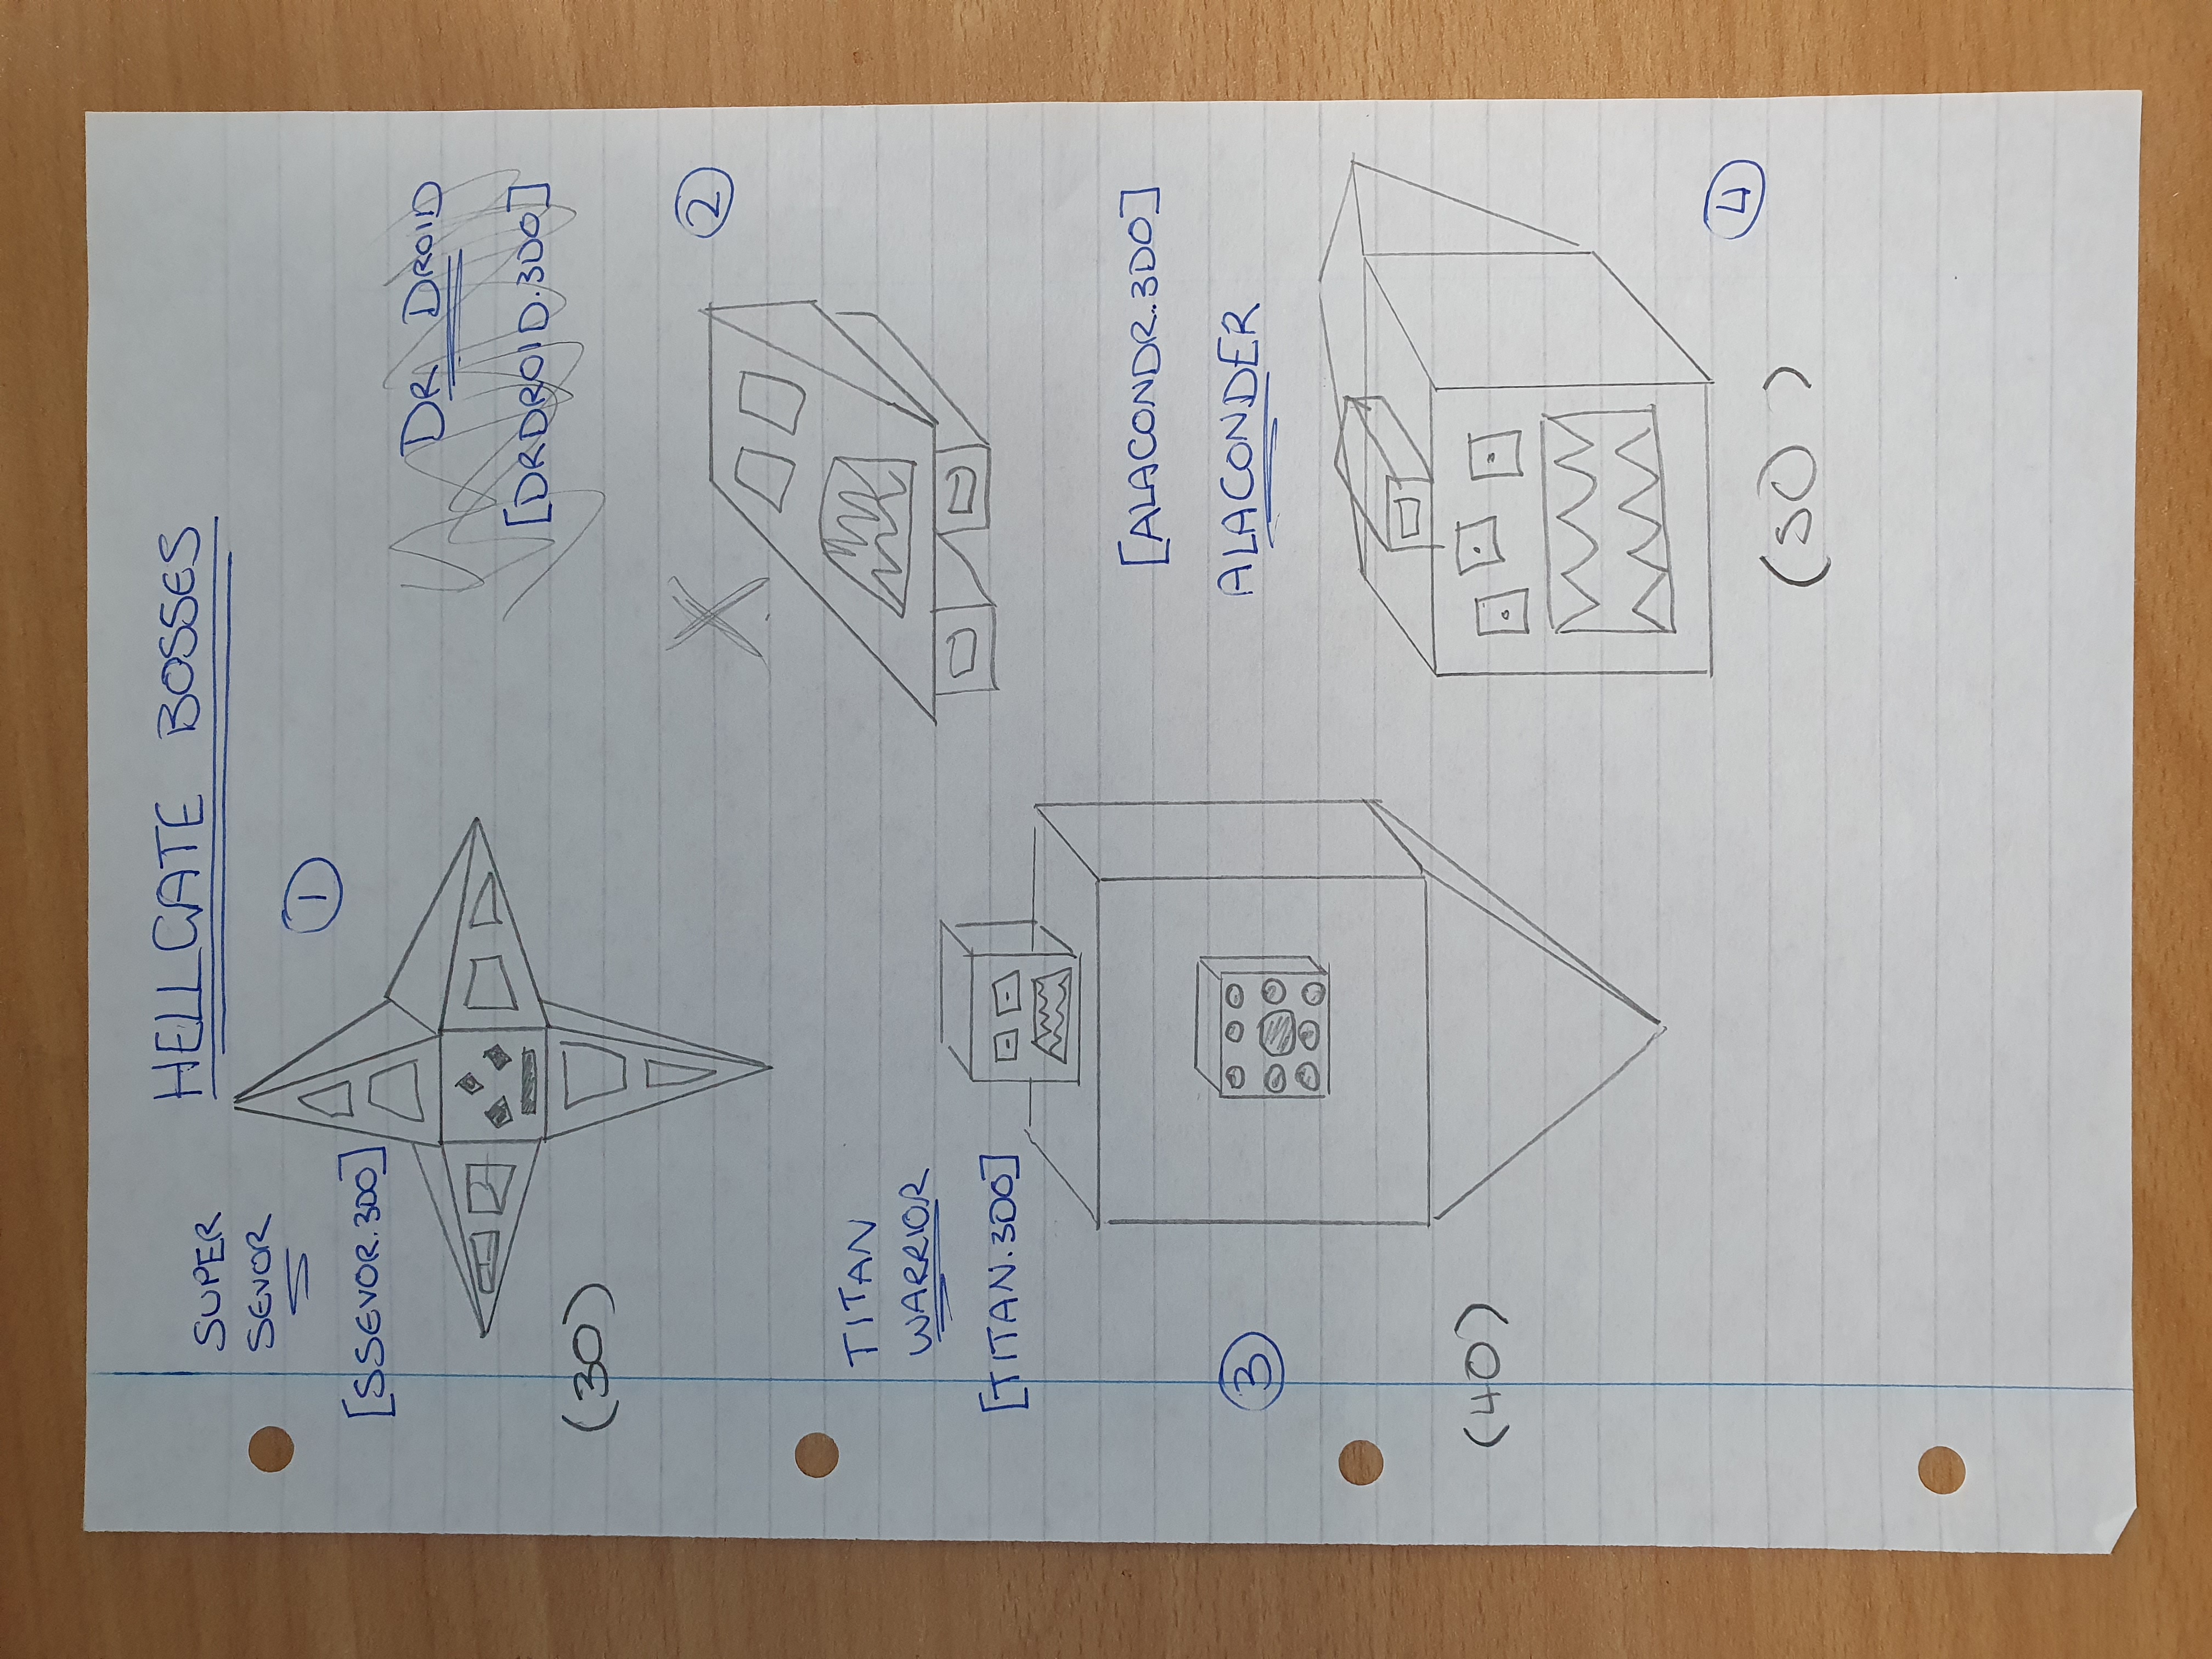 HELLGATE BOSSES
SUPER
SEVOR
1
[SSEVOR.3DO]
(30)
DR DROID
[DRDROID.3DO]
X
2
TITAN
WARRIOR
[TITAN.3DO]
3
(40)
[ALACONDR.3DO]
ALACONDER
4
(50)